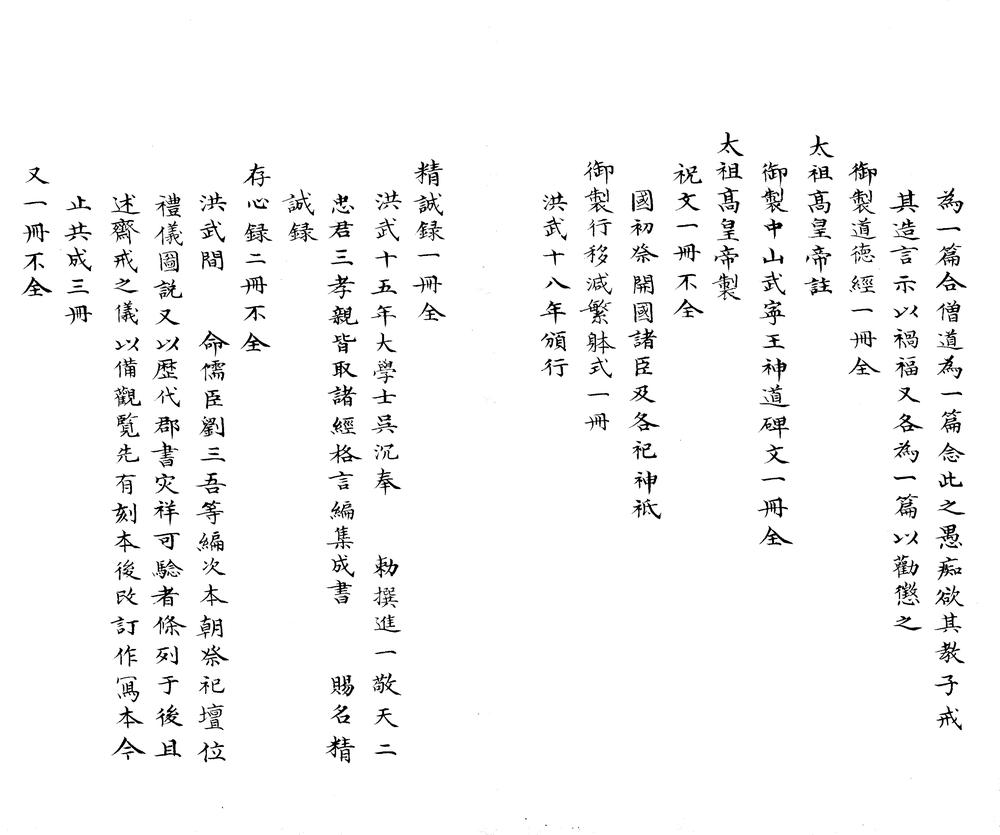 為一篇合僧道為一篇念此之愚痴欲其教子戒
其造言示以禍福又各為一篇以勸懲之
御製道德經一冊全
太祖髙皇帝註
御製中山武寧王神道碑文一冊全
太祖髙皇帝製
祝文一冊不全
國初祭開國諸臣及各祀神祇
御製行移減繁躰式一冊
洪武十八年頒行
精誠録一冊全
洪武十五年大學士吳沉奉 勅撰進一敬天二
忠君三孝親皆取諸經格言編集成書 賜名精
誠録
存心録二冊不全
洪武間 命儒臣劉三吾等編次本朝祭祀壇位
禮儀圖説又以歷代郡書灾祥可驗者條列于後且
述齋戒之儀以備觀覽先有刻本後改訂作寫本今
止共成三冊
又一冊不全